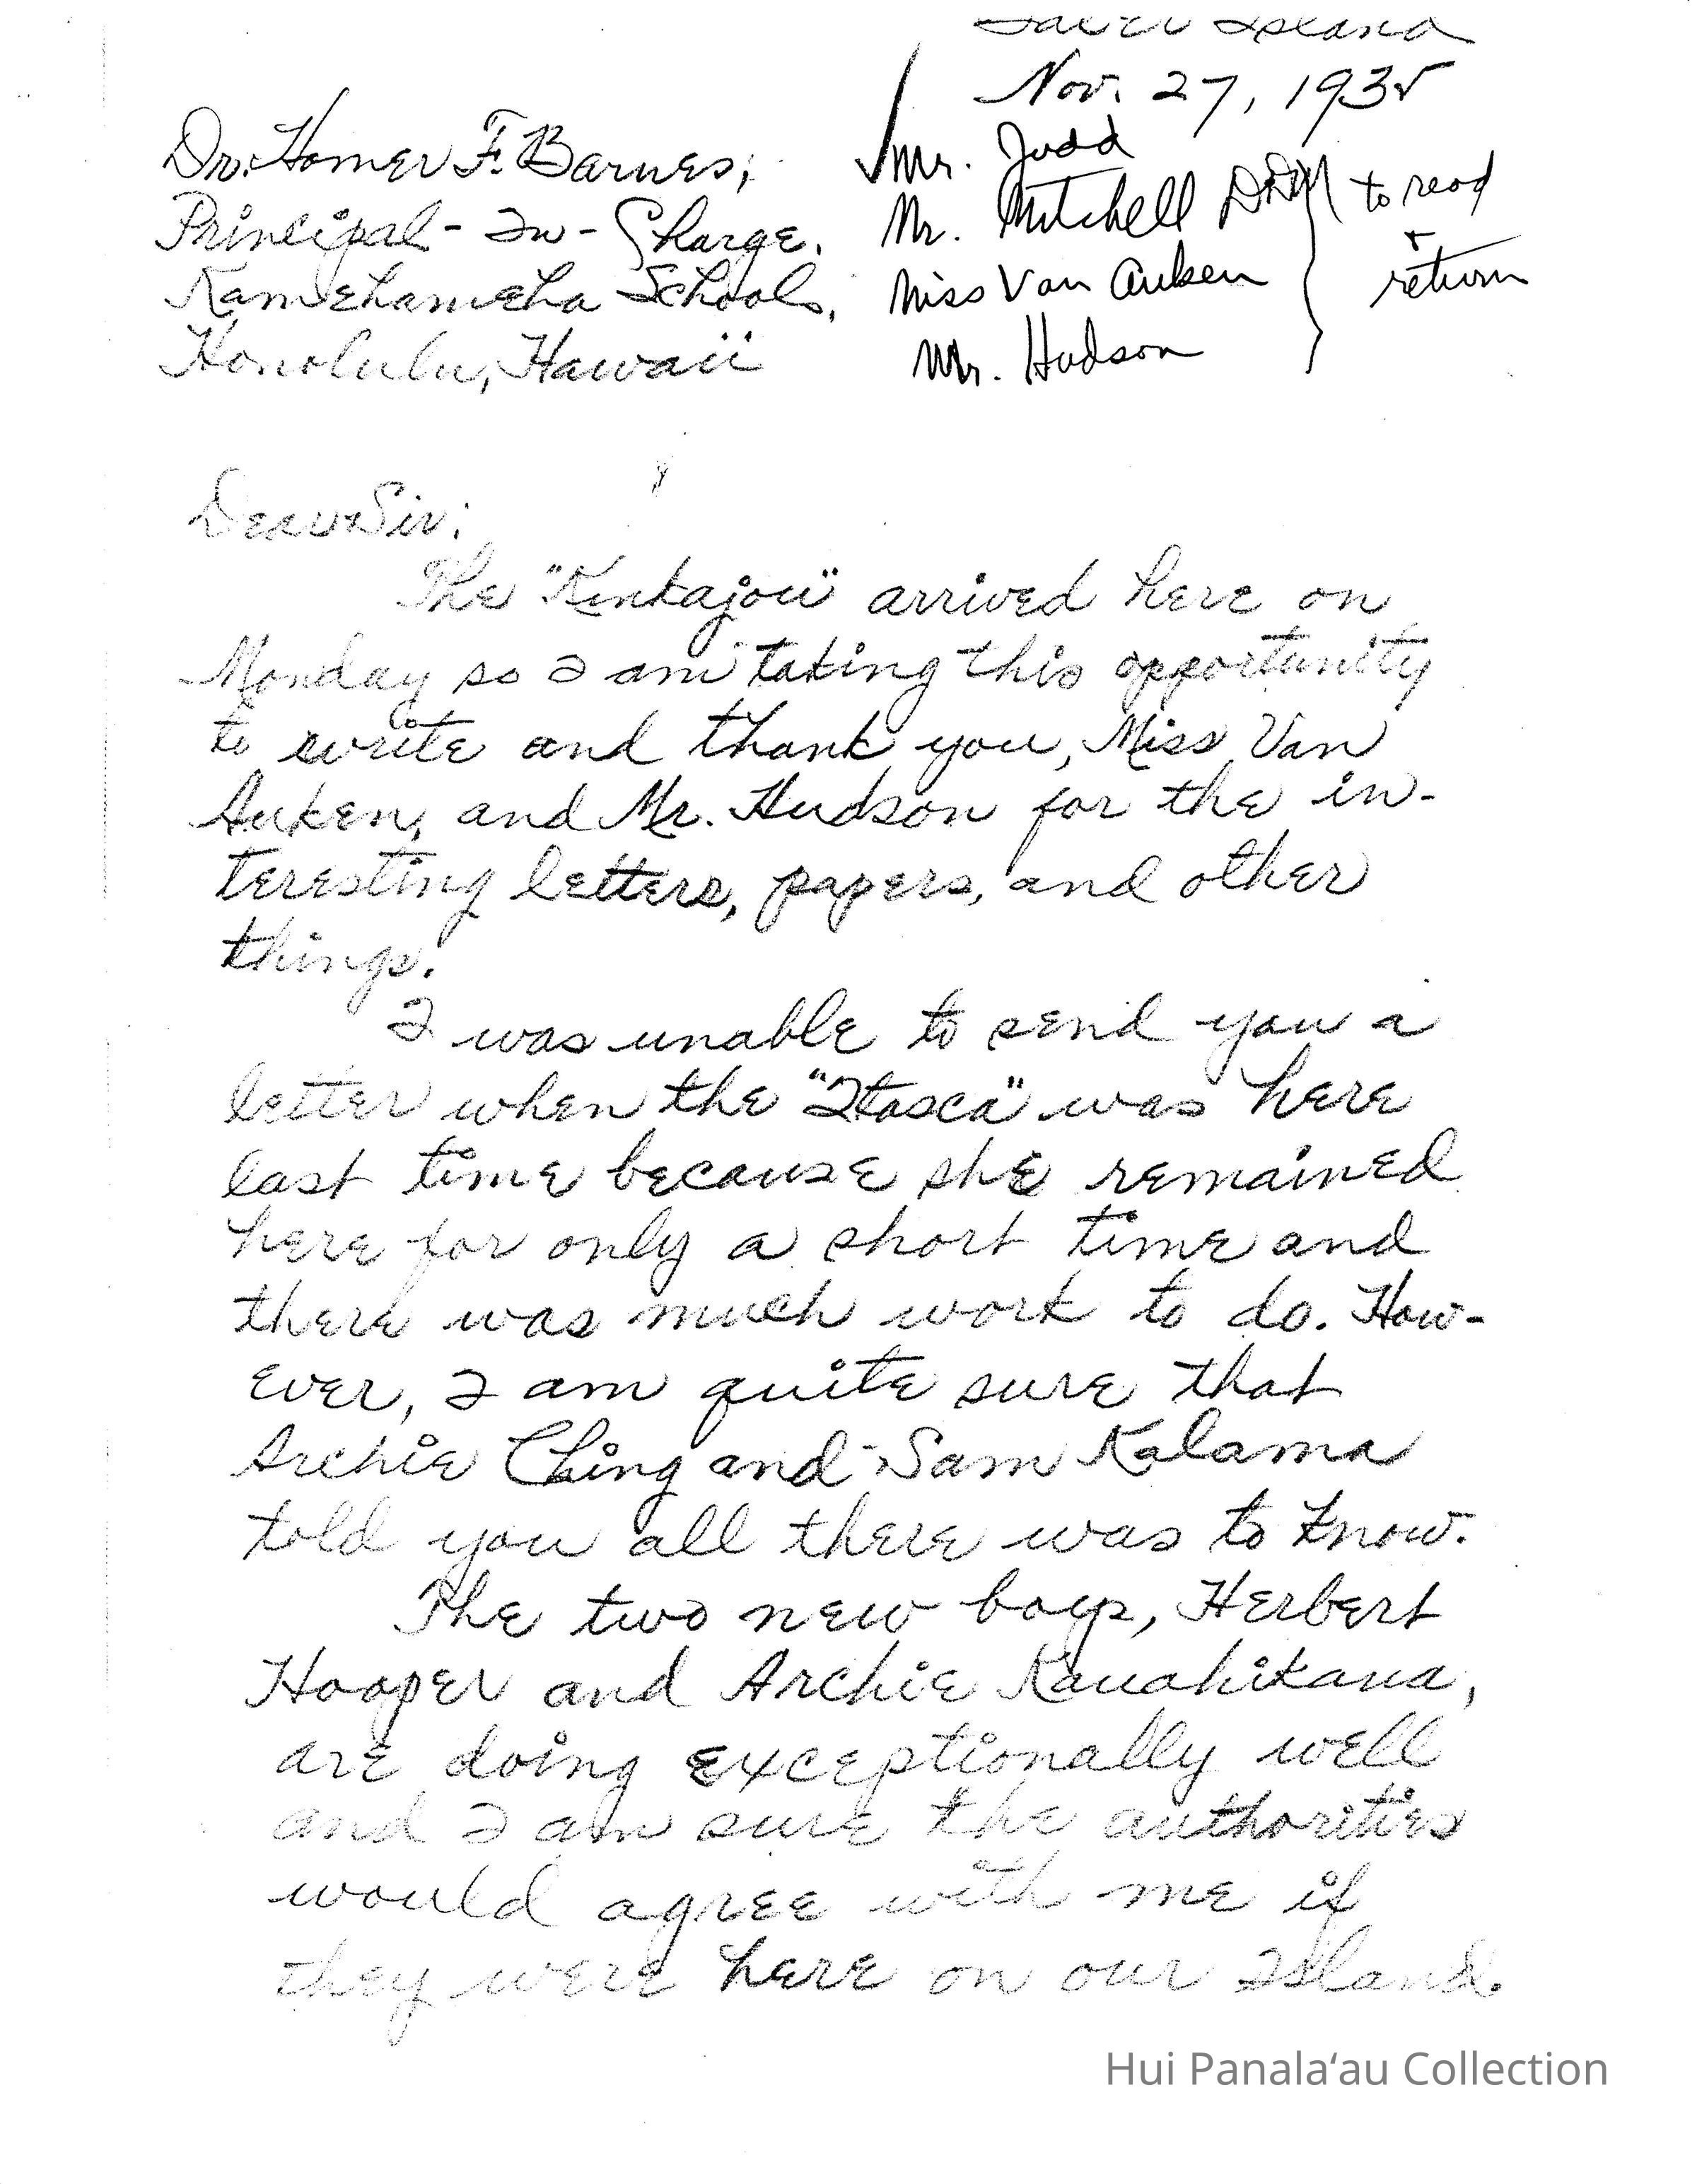 Jarvis Island
Nov. 27, 1935
Dr. Homer F. Barnes,
Principal-In-Charge.
Kamehameha Schools,
Honolulu, Hawaii
✓Mr. Judd
Mr. Mitchell
Miss Van Auken
Mr. Hudson
to read
+
return
Dear Sir:
The "Kinkajou" arrived here on
Monday so I am taking this opportunity
to write and thank you, Miss Van
Auken, and Mr. Hudson for the in-
teresting letters, papers, and other
things.
I was unable to send you a
letter when the "Itasca" was here
last time because she remained
here for only a short time and
there was much work to do. How-
ever, I am quite sure that
Archie Ching and Sam Kalama
told you all there was to know.
The two new boys, Herbert
Hooper and Archie Kauahikaua,
are doing exceptionally well
and I am sure the authorities
would agree with me if
they were here on our Island.
Hui Panalaʻau Collection